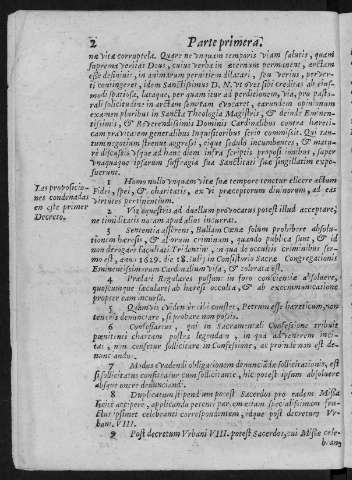 2 Parte primera.
næ vitæ corruptela. Quare ne vnquam temporis viam salutis, quam
suprema veritas Deus, cuius verba in æternum permanent, arctam
esse definiuit, in animarum perniciem dilatari, seu verius, perver-
ti contingeret, idem Sanctissimus D. N. vt oves sibi creditas ab eius-
modi spatiosa, lataque, per quam itur ad perditionem, via, pro pasto-
rali solicitudine in arctam semitam evocaret, earundem opinionum
examen pluribus in Sacra Theologia Magistris, & deinde Eminen-
tissimis, & Reverendissimis Dominis Cardinalibus contra hæreti-
cam pravitatem generalibus Inquisitoribus serio commissit. Qui tan-
tum negotium strenue aggressi, eique sedulo incumbentes, & matu-
re discussis vsque ad hanc diem infra scriptis propositionibus, super
vnaquaque ipsarum suffragia sua Sanctitati suæ singillatim expo-
suerunt.
1 Homo nullo vnquam vitæ suæ tempore tenetur elicere actum
Fidei, spei, & charitatis, ex vi præceptorum divinorum, ad eas
virtutes pertinentium.
Las proposicio-
nes condenadas
en este primer
Decreto.
2 Vir equestris ad duellum provocatus potest illud acceptare,
ne timiditatis notam apud alios incurrat.
3 Sententia asserens, Bullam Cœnæ solum prohibere absolu-
tionem hæresis, & aliorum criminum, quando publica sunt, & id
non derogare facultati Tridentini, in qua de occultis criminibus ser-
mo est, anno 1629. die 18. Iulij in Consistorio Sacræ Congregationis
Eminentissimorum Cardinalium visa, & tolerata est.
4 Prælati Regulares possunt in foro conscientiæ absolvere,
quoscumque sæculares ab hæresi occulta, & ab excommunicatione
propter eam incursa.
5 Quamvis evidenter tibi constet, Petrum esse hæreticum, non
teneris denuntiare, si probare non possis.
6 Confessarius, qui in Sacramentali Confessione tribuit
pænitenti chartam postea legendam, in qua ad venerem inci-
tat, non censetur sollicitare in Confessione, ac proinde non est de-
nuntiandus.
7 Modus evadendi obligationem denuntiandæ sollicitationis, est
si sollicitatus confiteatur cum sollicitante, hic potest ipsum absolvere
absque onere denuntiandi.
8 Duplicatum stipendium potest Sacerdos pro eadem Missa
licitè accipere, applicando petenti partem etiam specialissimam fru-
ctus ipsimet celebranti correspondentem, idque post decretum Vr-
bani. VIII.
9 Post decretum Vrbani VIII. potest Sacerdos, cui Missæ cele-
brandæ